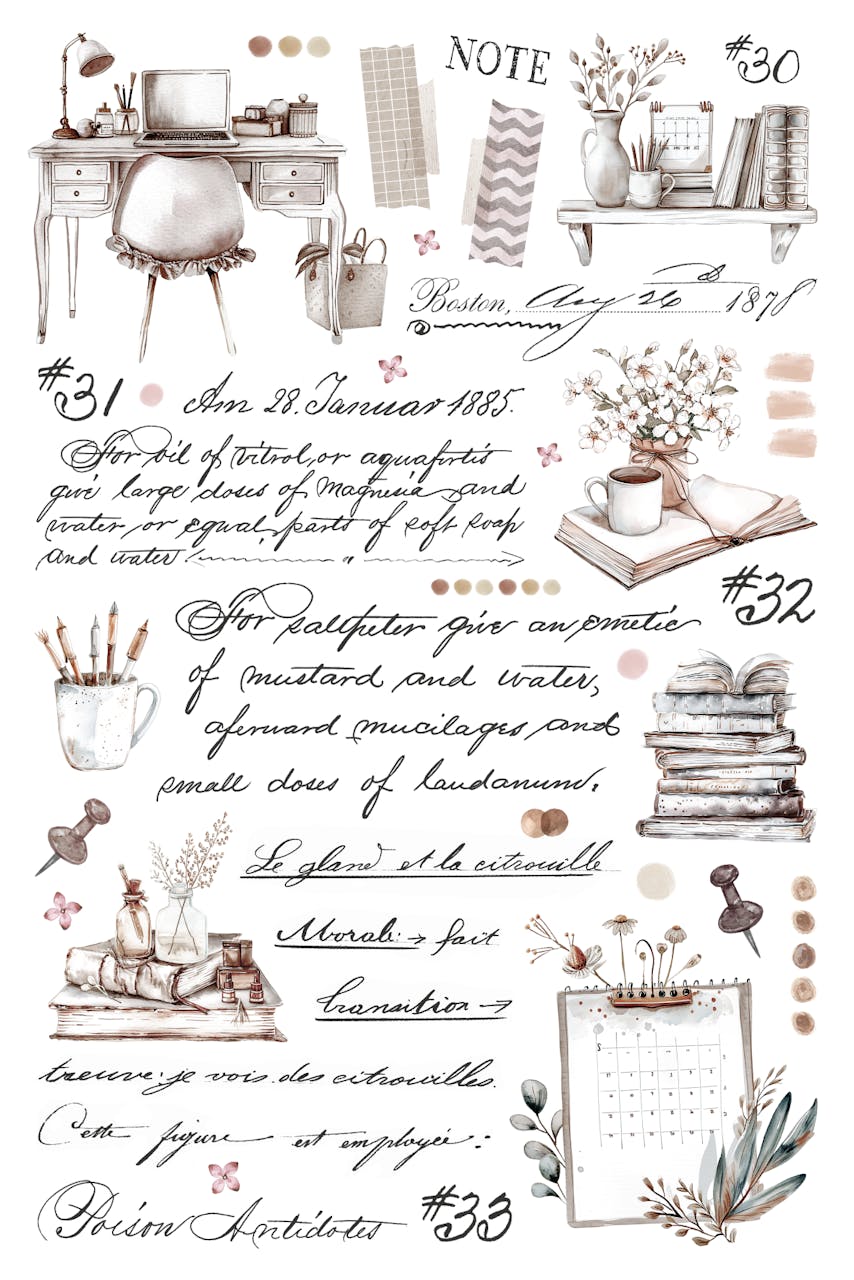 NOTE
#30
Boston, Aug 26 1878
#31
Am 28. Januar 1885.
For oil of vitrol, or aquafortis
give large doses of Magnesia and
water or equal parts of soft soap
and water
#32
For saltpeter give an emetic
of mustard and water,
aferward mucilages and
small doses of laudanum.
Le gland et la citrouille
Morale: → fait
transition →
treuve: je vois des citrouilles.
Cette figure est employée:
Poison Antidotes
#33